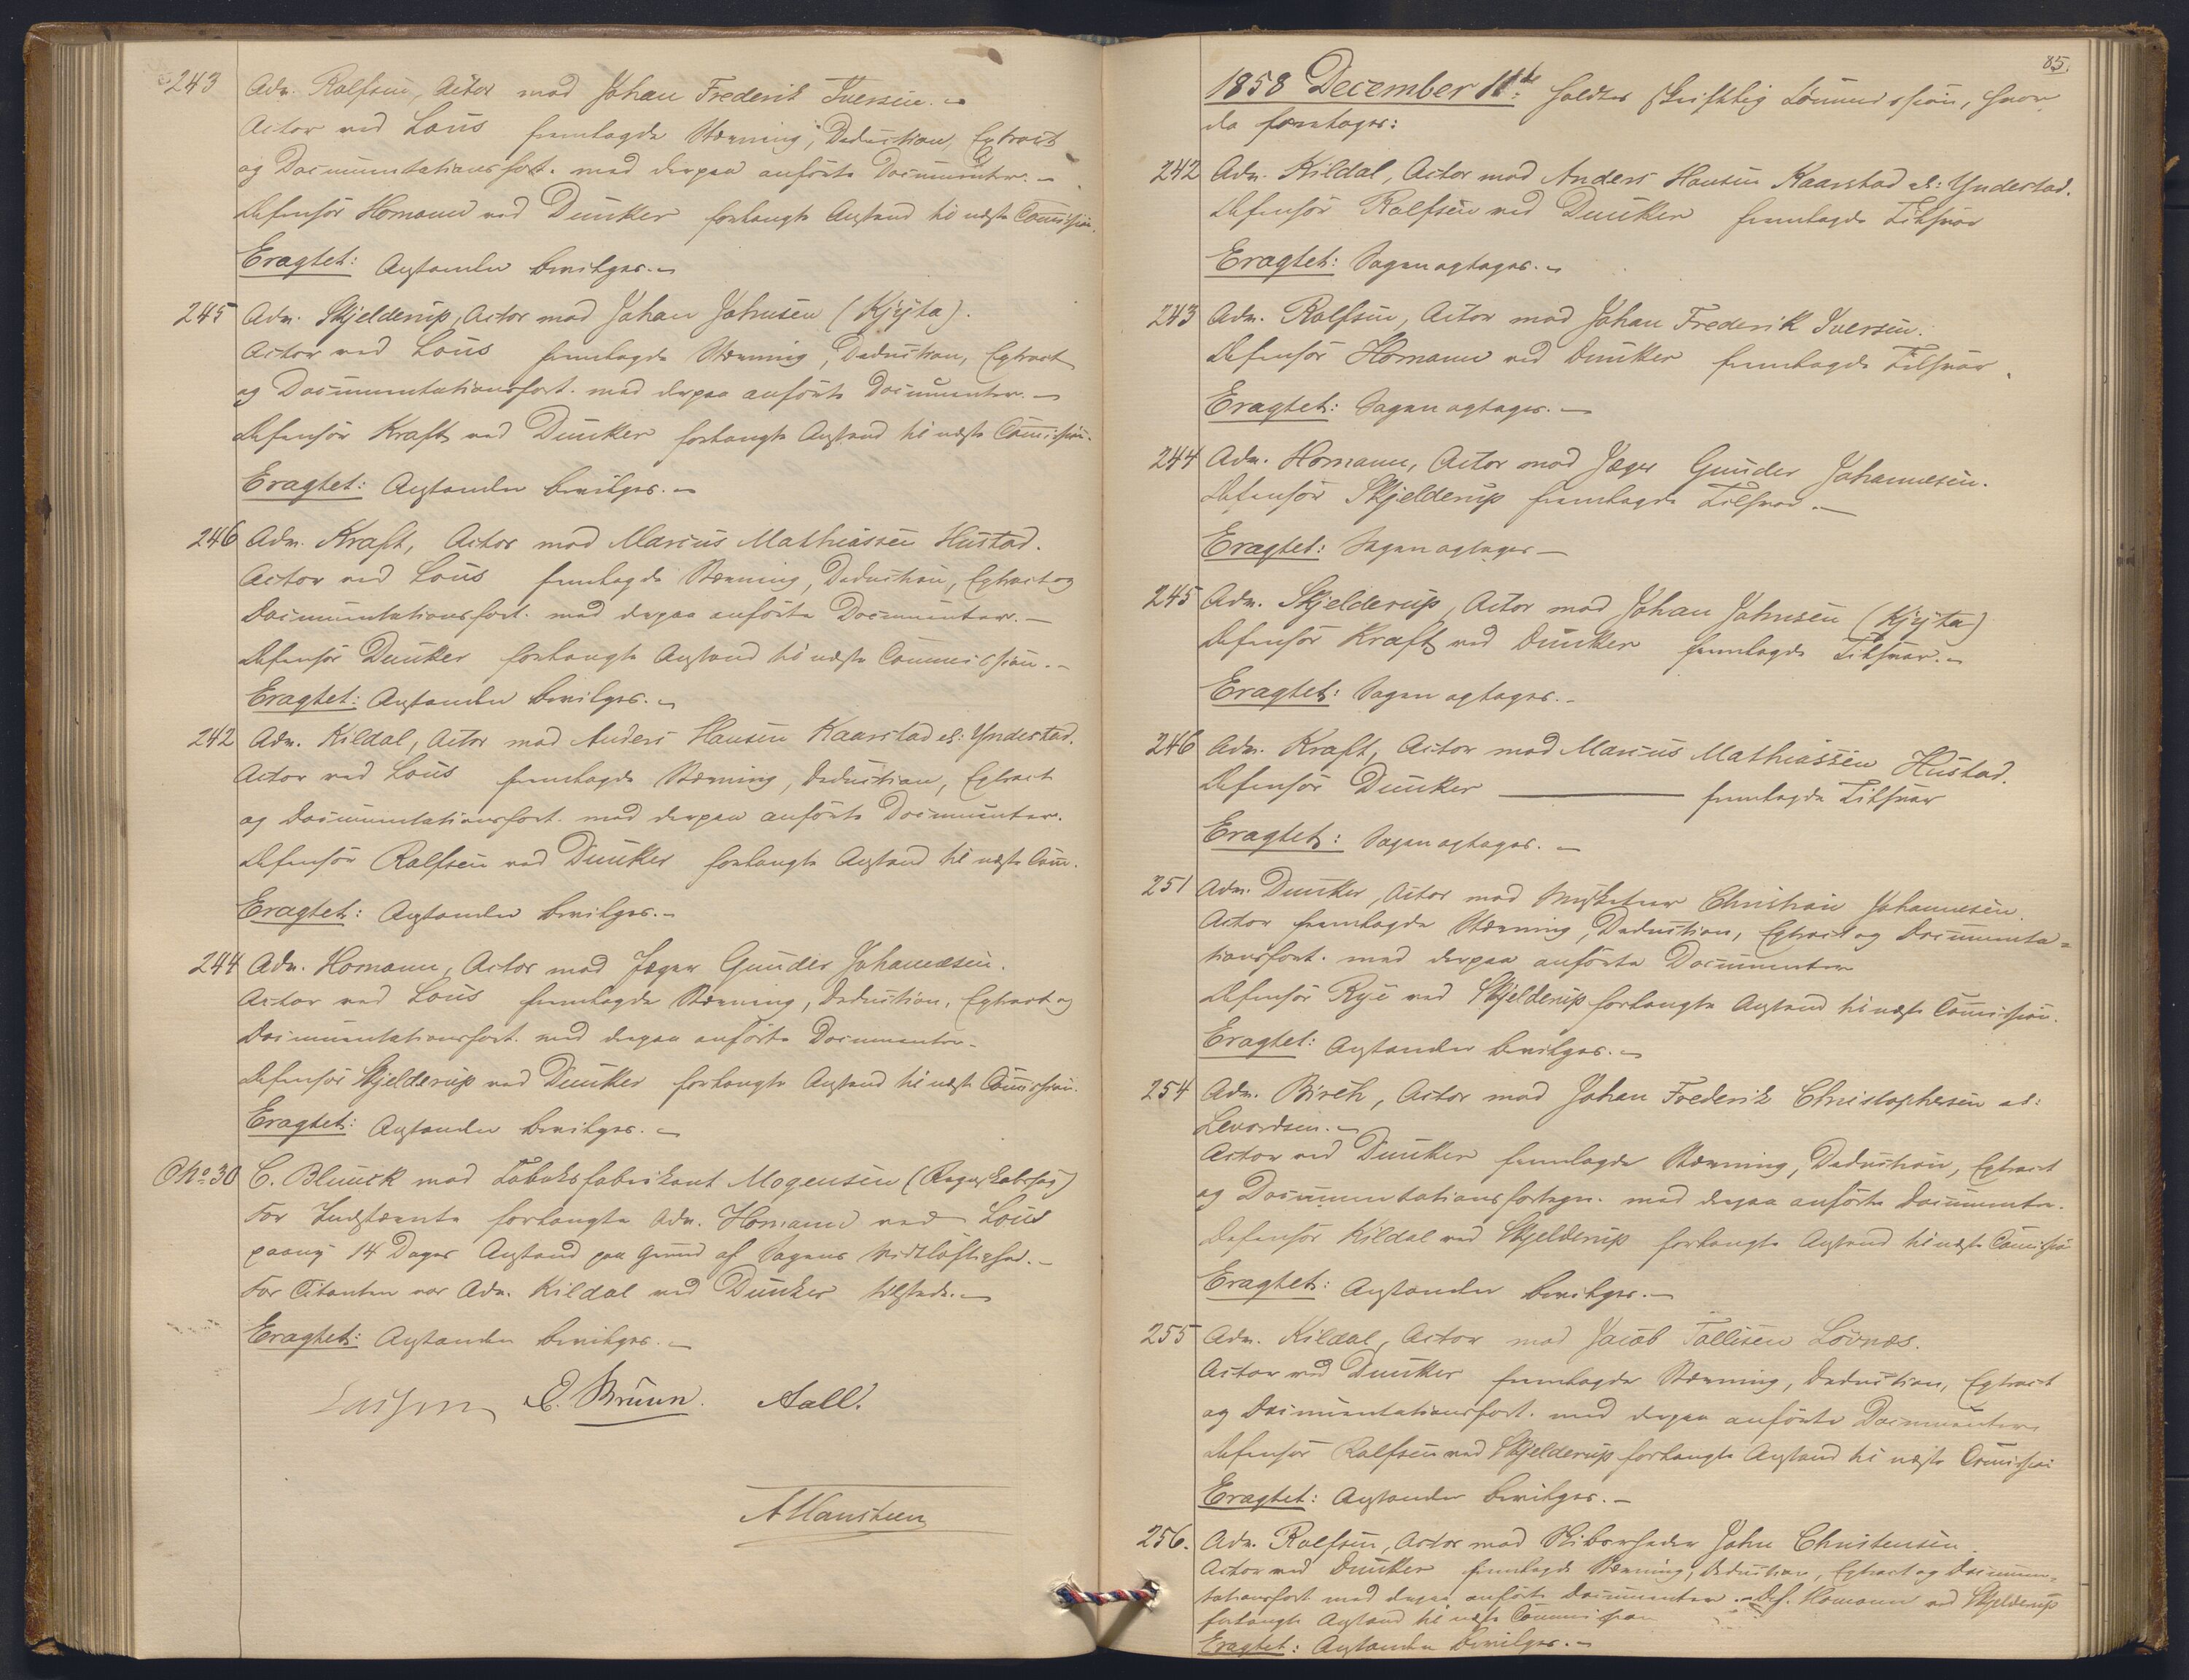 243 Adv. Rolfsen, Actor mod Johan Frederik Iversen. –
Actor ved Lous fremlagde Stævning, Deduction, Extract
og Documentationsfort. med derpaa anførte Documenter. –
Defensor Homann ved Dunker forlangte Anstand til næste Commission.
Eragtet: Anstanden bevilges. –
245 Adv. Skjelderup, Actor mod Johan Johnsen (Kjÿta).
Actor ved Lous fremlagde Stævning, Deduction, Extract
og Documentationsfort. med derpaa anførte Documenter. –
Defensor Kraft ved Dunker forlangte Anstand til næste Commission.
Eragtet: Anstanden bevilges. –
246 Adv. Kraft, Actor mod Marcus Mathiassen Hustad.
Actor ved Lous fremlagde Stævning, Deduction, Extract og
Documentationsfort. med derpaa anførte Documenter. –
Defensor Dunker forlangte Anstand til næste Commission. –
Eragtet: Anstanden bevilges. –
242 Adv. Kildal, Actor mod Anders Hansen Kaarstad el: Yndestad.
Actor ved Lous fremlagde Stævning, Deduction, Extract
og Documentationsfort. med derpaa anførte Documenter.
Defensor Rolfsen ved Dunker forlangte Anstand til næste Comm.
Eragtet: Anstanden bevilges. –
244 Adv. Homann, Actor mod Jæger Gunder Johannesen.
Actor ved Lous fremlagde Stævning, Deduction, Extract og
Documentationsfort. med derpaa anførte Documenter. –
Defensor Skjelderup ved Dunker forlangte Anstand til næste Commission.
Eragtet: Anstanden bevilges. –
No 30 C. Blunck mod Tobaksfabrikant Mogensen (Regnskabssag)
For Indstævnte forlangte Adv. Homann ved Lous
paany 14 Dages Anstand paa Grund af Sagens Vidtløftighed. –
For Citanten var Adv. Kildal ved Dunker tilstede. –
Eragtet: Anstanden bevilges. –
E. Bruun. Aall.
A Hansteen
85.
1858 December 11te: holdtes skriftlig Commission, hvor
da foretoges:
242 Adv. Kildal, Actor mod Anders Hansen Kaarstad el: Yndestad.
Defensor Rolfsen ved Dunker fremlagde Tilsvar
Eragtet: Sagen optages. –
243 Adv. Rolfsen, Actor mod Johan Frederik Iversen.
Defensor Homann ved Dunker fremlagde Tilsvar.
Eragtet: Sagen optages. –
244 Adv. Homann, Actor mod Jæger Gunder Johannesen.
Defensor Skjelderup fremlagde Tilsvar. –
Eragtet: Sagen optages –
245 Adv. Skjelderup, Actor mod Johan Johnsen (Kjÿta)
Defensor Kraft ved Dunker fremlagde Tilsvar. –
Eragtet: Sagen optages. –
246 Adv. Kraft, Actor mod Marcus Mathiassen Hustad.
Defensor Dunker –––– fremlagde Tilsvar
Eragtet: Sagen optages. –
251 Adv. Dunker, Actor mod Musketeer Christian Johannesen.
Actor fremlagde Stævning, Deduction, Extract og Documenta=
tionsfort. med derpaa anførte Documenter
Defensor Rye ved Skjelderup forlangte Anstand til næste Commission.
Eragtet: Anstanden bevilges. –
254 Adv. Birch, Actor mod Johan Frederik Christophersen el:
Levordsen. –
Actor ved Dunker fremlagde Stævning, Deduction, Extract
og Documentationsfortegn. med derpaa anførte Documenter.
Defensor Kildal ved Skjelderup forlangte Anstand til næste Commission
Eragtet: Anstanden bevilges. –
255 Adv. Kildal, Actor mod Jacob Tollisen Løvnæs.
Actor ved Dunker fremlagde Stævning, Deduction, Extract
og Documentationsfort. med derpaa anførte Documenter
Defensor Rolfsen ved Skjelderup forlangte Anstand til næste Commission
Eragtet: Anstanden bevilges. –
256. Adv. Rolfsen, Actor mod John Christensen.
Actor ved Dunker fremlagde Stævning, Deduction, Extract og Documen=
tationsfort med derpaa anførte Documenter. – Def. Homann ved Skjelderup
forlangte Anstand til næste Commission
Eragtet: Anstanden bevilges. –